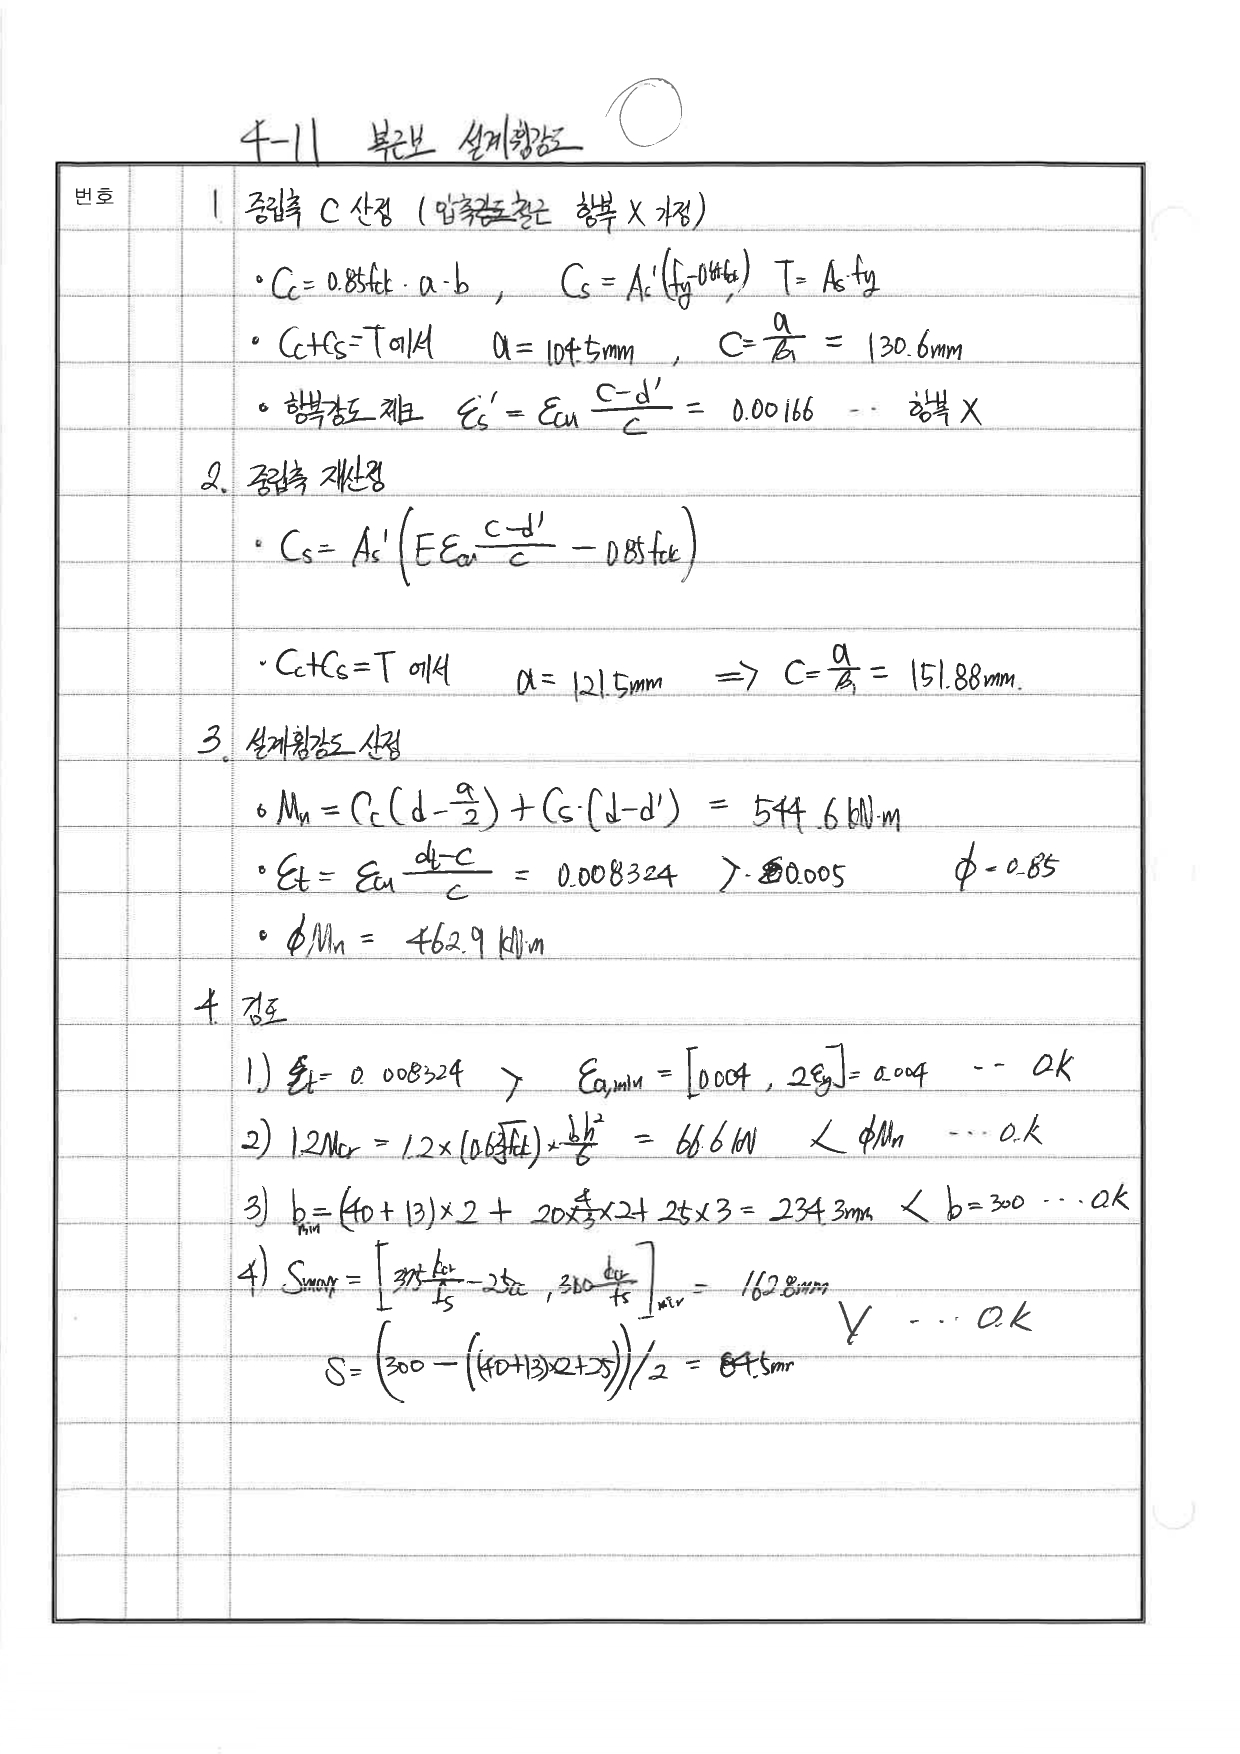 4-11 복근보 설계휨강도
번호
1 중립축 C 산정 (압축철근 항복 X 가정)
• Cc = 0.85fck · a · b , Cs = As'(fy-0.85fck) , T = As·fy
• Cc+Cs=T 에서 a = 104.5mm , C = a/β1 = 130.6mm
• 항복강도 체크 εs' = εcu (c-d')/c = 0.00166 ·· 항복 X
2. 중립축 재산정
• Cs = As' (Eεcu (c-d')/c - 0.85fck)
• Cc+Cs = T 에서 a = 121.5mm => C = a/β1 = 151.88mm.
3. 설계휨강도 산정
• Mn = Cc(d - a/2) + Cs·(d-d') = 544.6 kN·m
• εt = εcu (dt-c)/c = 0.008324 > 0.005 φ = 0.85
• φMn = 462.9 kN·m
4. 검토
1) εt = 0.008324 > εa,min = [0.004 , 2εy] = 0.004 ·· O.K
2) 1.2Mcr = 1.2 × (0.63√fck) × bh²/6 = 66.6 kN < φMn ··· O.K
3) bmin = (40+13)×2 + 20×4/3×2 + 25×3 = 234.3mm < b=300 ··· O.K
4) Smax = [375 kcr/fs - 2.5Cc , 300 kcr/fs]min = 162.8mm
∨ ··· O.K
S = (300 - ((40+13)×2+25))/2 = 84.5mm